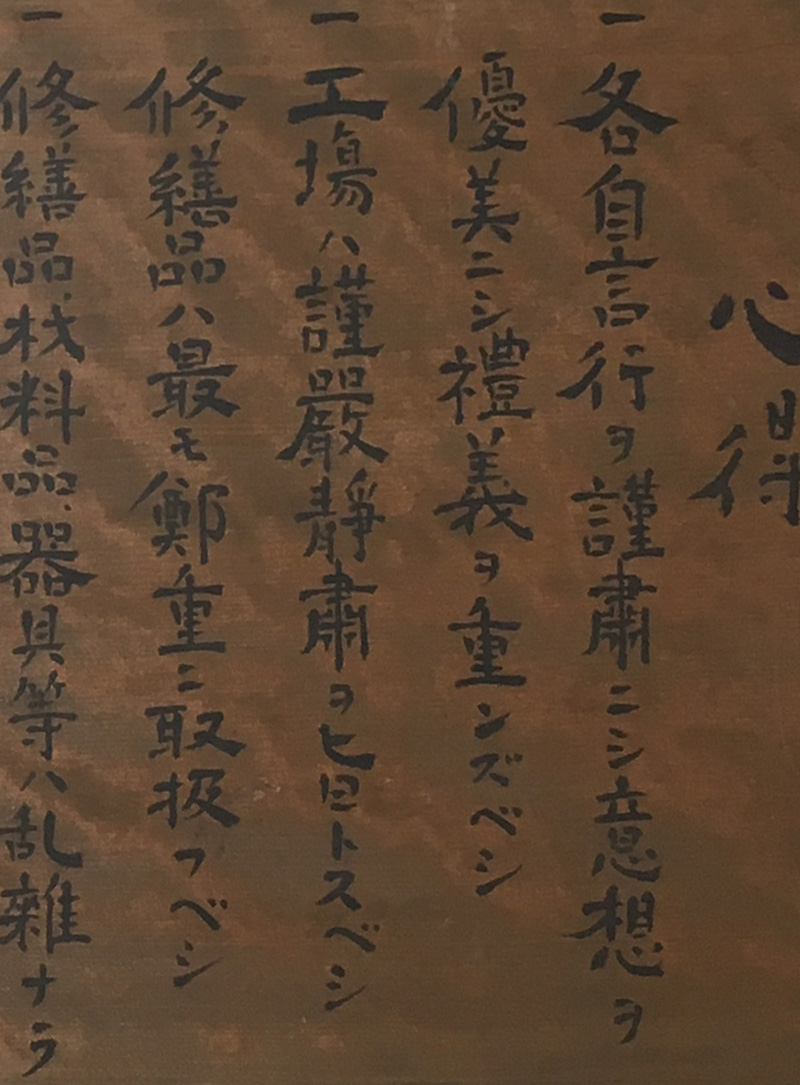 心得
一各自言行ヲ謹肅ニシ意想ヲ
優美ニシ禮義ヲ重ンズベシ
一工場ハ謹嚴靜肅ヲ旨トスベシ
修繕品ハ最モ鄭重ニ取扱フベシ
一修繕品材料品器具等ハ乱雜ナラ